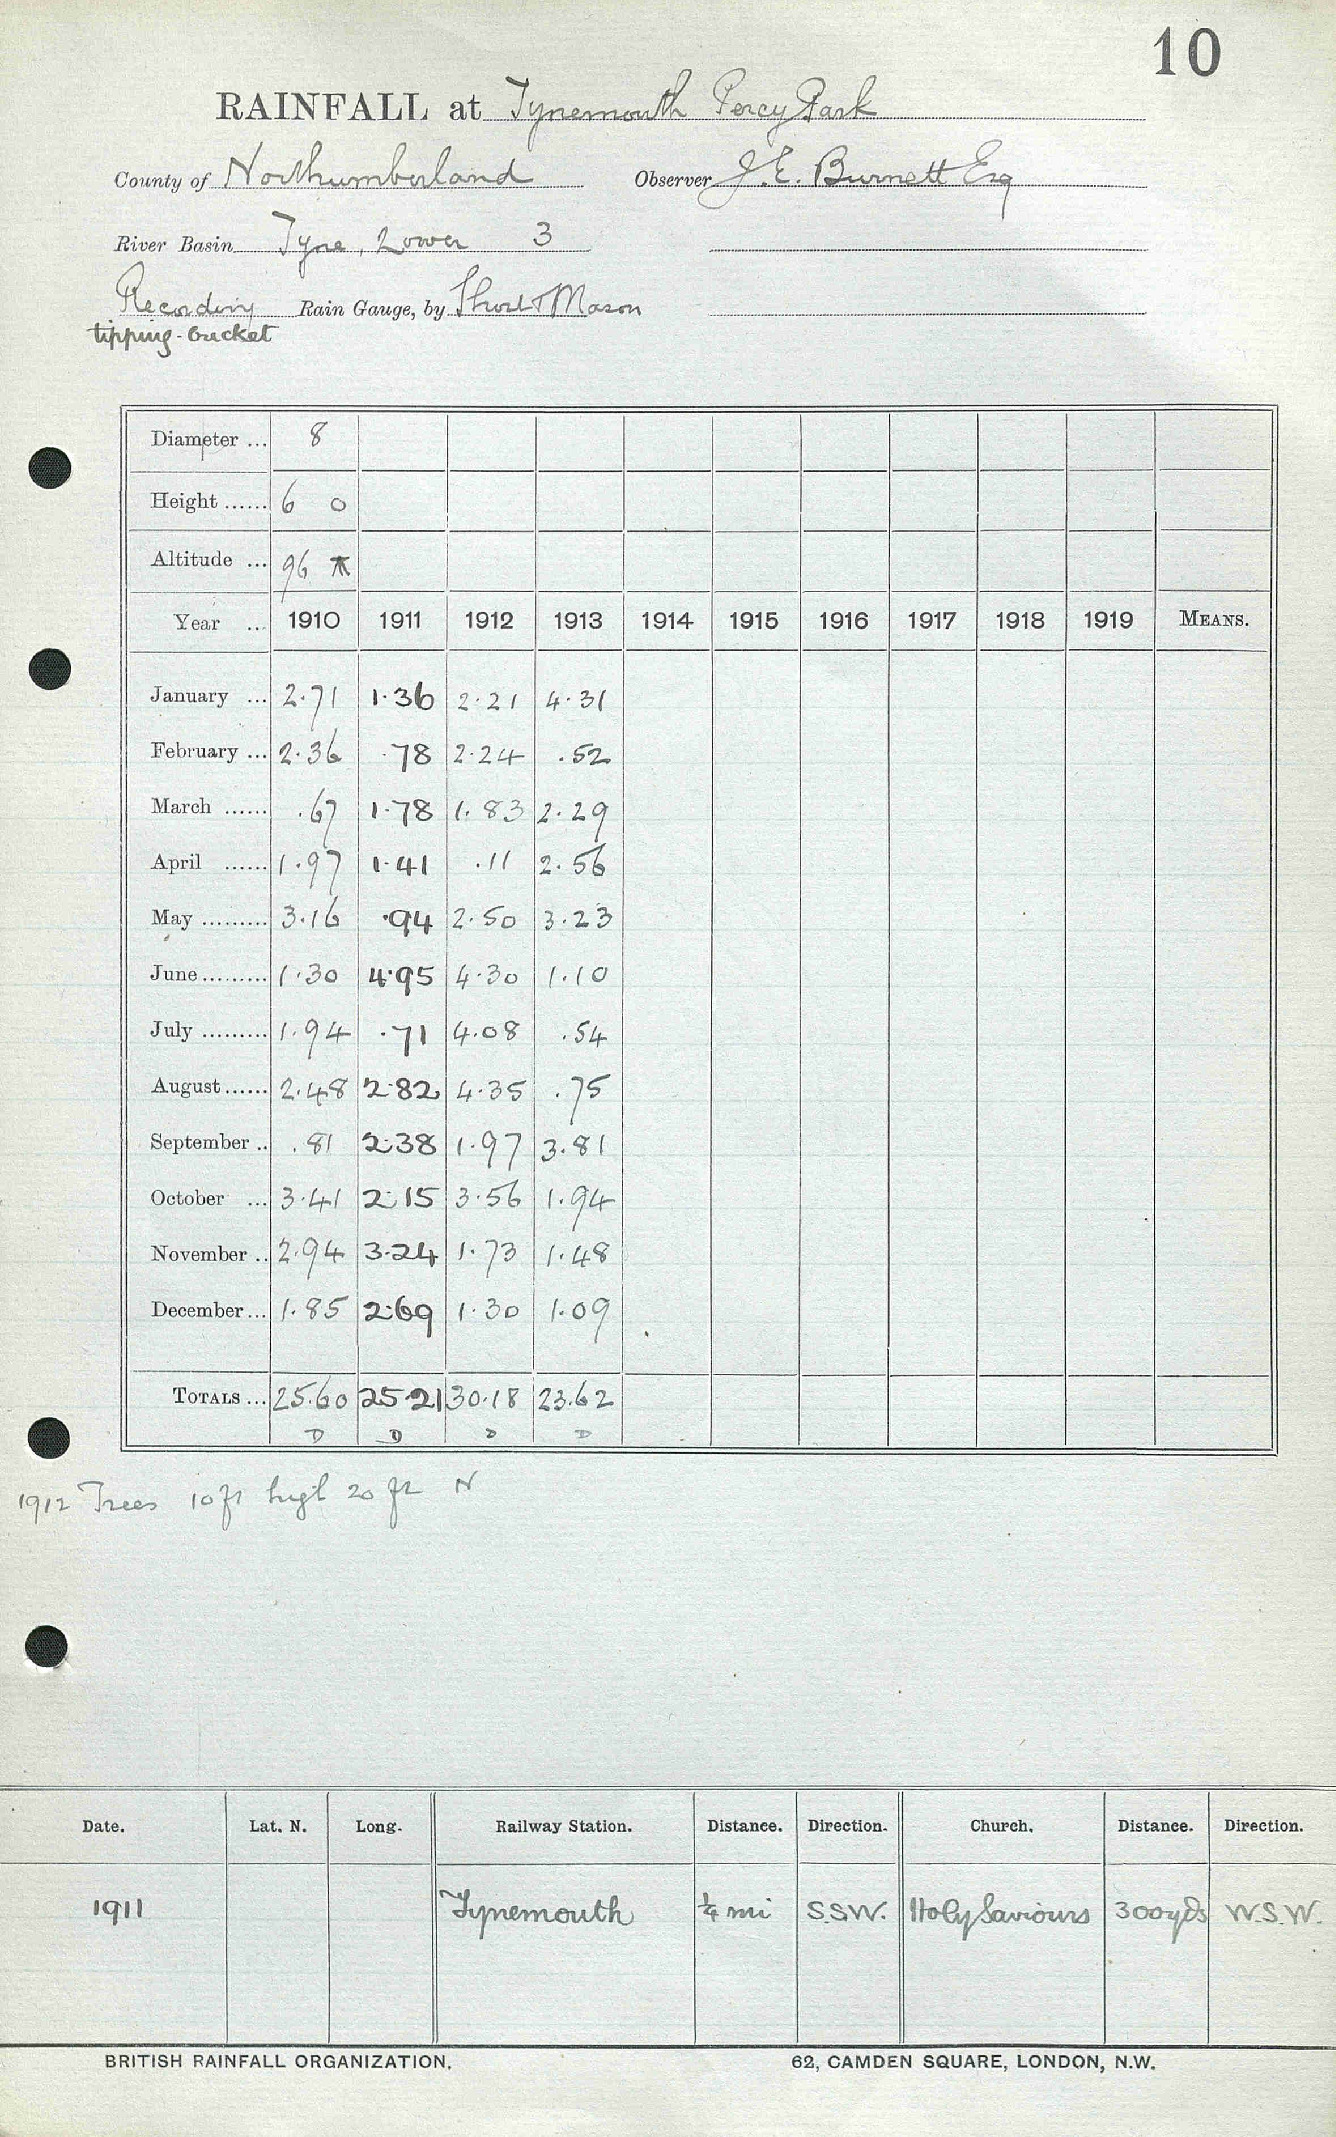 10
RAINFALL at Tynemouth Percy Park
County of Northumberland Observer J. E. Burnett Esq
River Basin Tyne, Lower 3
Recording Rain Gauge, by Short & Mason
tipping-bucket
Diameter ... 8
Height ...... 6 0
Altitude ... 96
Year ... 1910 1911 1912 1913 1914 1915 1916 1917 1918 1919 MEANS.
January ... 2.71 1.36 2.21 4.31
February ... 2.36 .78 2.24 .52
March ...... .67 1.78 1.83 2.29
April ...... 1.97 1.41 .11 2.56
May ......... 3.16 .94 2.50 3.23
June ......... 1.30 4.95 4.30 1.10
July ......... 1.94 .71 4.08 .54
August ...... 2.48 2.82 4.35 .75
September .. .81 2.38 1.97 3.81
October ... 3.41 2.15 3.56 1.94
November .. 2.94 3.24 1.73 1.48
December ... 1.85 2.69 1.30 1.09
TOTALS ... 25.60 25.21 30.18 23.62
D D D D
1912 Trees 10 ft high 20 ft N
Date. Lat. N. Long. Railway Station. Distance. Direction. Church. Distance. Direction.
1911 Tynemouth ¼ mi S.S.W. Holy Saviours 300 yds W.S.W.
BRITISH RAINFALL ORGANIZATION. 62, CAMDEN SQUARE, LONDON, N.W.